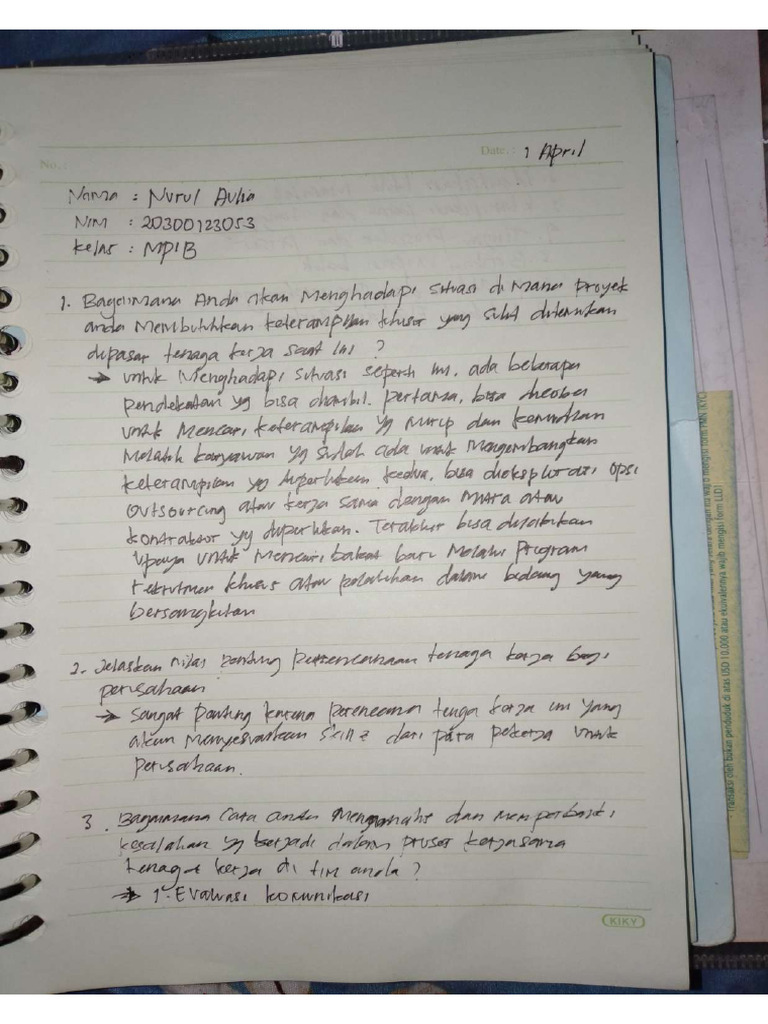 No.:
Date.: 1 April
Nama : Nurul Aulia
NIM : 20300123053
Kelas : MPI B
1. Bagaimana Anda akan Menghadapi situasi di Mana Proyek
anda Membutuhkan keterampilan khusus yang sulit ditemukan
dipasar tenaga kerja saat ini ?
→ untuk Menghadapi situasi seperti ini, ada beberapa
pendekatan yg bisa diambil. pertama, bisa dicoba
untuk Mencari keterampilan yg Mirip dan kemudian
Melatih karyawan yg sudah ada untuk Mengembangkan
keterampilan yg diperlukan kedua, bisa dieksplorasi opsi
outsourcing atau kerja sama dengan Mitra atau
kontraktor yg diperlukan. Terakhir bisa dilakukan
upaya untuk Mencari bakat baru Melalui program
rekrutmen khusus atau pelatihan dalam bidang yang
bersangkutan
2. Jelaskan nilai penting perencanaan tenaga kerja bagi
perusahaan
→ sangat penting karena perencana tenaga kerja ini yang
akan Menyesuaikan skill dari para pekerja untuk
perusahaan.
3. Bagaimana cara anda dan Memperbaiki
kesalahan yg terjadi dalam proses kerjasama
tenaga kerja di tim anda ?
→ 1. Evaluasi komunikasi
KIKY
Transaksi oleh bukan penduduk di atas USD 10.000 atau ekuivalennya wajib mengisi form LLD